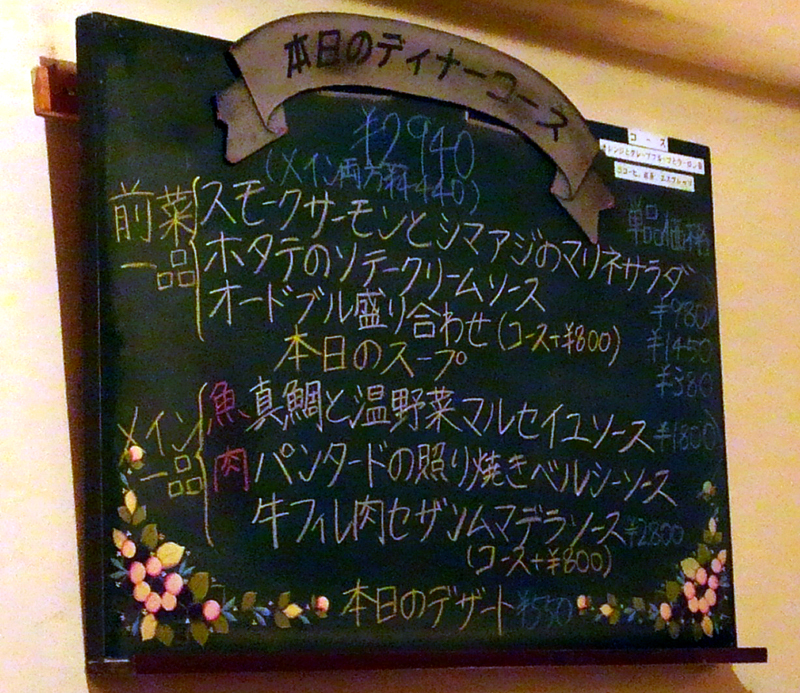 本日のディナーコース
¥2940
(メイン両方料4440)
コース
オレンジとグレープフルーツとウーロン茶
単品価格
前菜一品
スモークサーモンとシマアジのマリネサラダ
ホタテのソテークリームソース ¥980
オードブル盛り合わせ(コース+¥800) ¥1450
本日のスープ ¥380
メイン一品
魚 真鯛と温野菜マルセイユソース ¥1800
肉 パンタードの照り焼きベルシーソース
牛フィレ肉セザンムマデラソース ¥2800
(コース+¥800)
本日のデザート ¥550